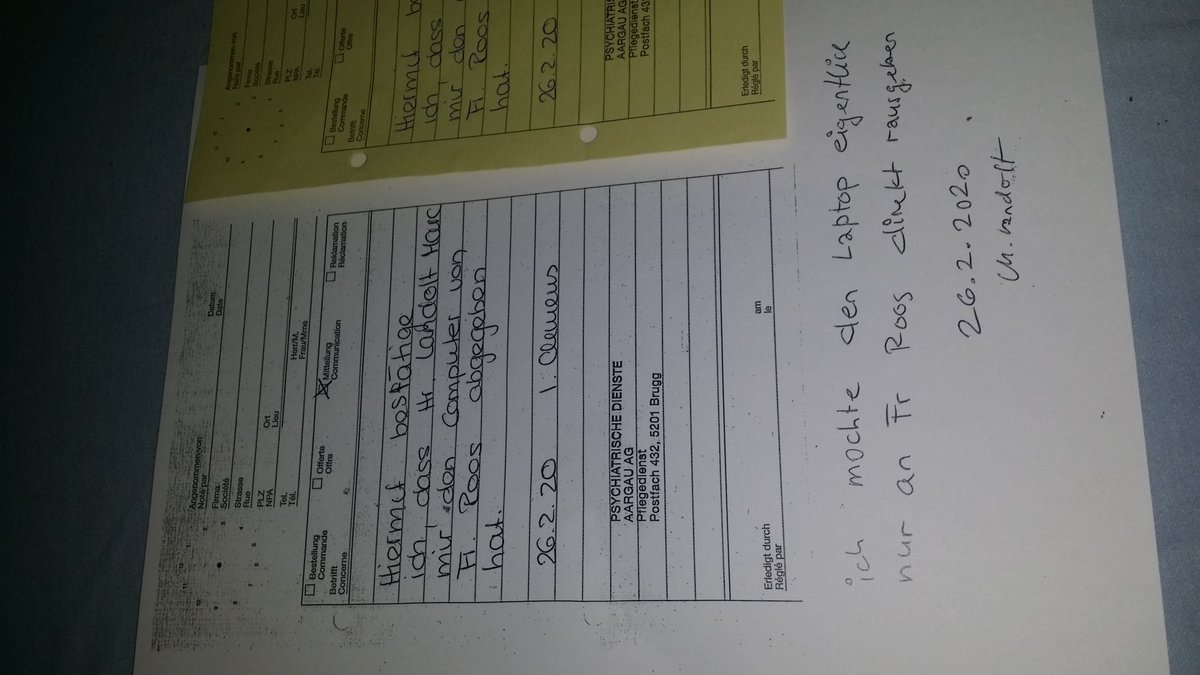 Angenommen von
Noté par
Datum
Date
Firma
Société
Strasse
Rue
PLZ Ort
NPA Lieu
Tel. Herr/M.
Tél. Frau/Mme
Bestellung Offerte Mitteilung Reklamation
Commande Offre Communication Réclamation
Betrifft
Concerne
Hiermit bestätige
ich, dass Hr. Landolt Marc
mir den Computer von
Fr. Roos abgegeben
hat.
26.2.20 I. Clemens
PSYCHIATRISCHE DIENSTE
AARGAU AG
Pflegedienst
Postfach 432, 5201 Brugg
Erledigt durch am
Réglé par le
Angenommen von
Noté par
Firma
Société
Strasse
Rue
PLZ Ort
NPA Lieu
Tel.
Tél.
Bestellung Offerte
Commande Offre
Betrifft
Concerne
Hiermit b
ich, dass
mir den
Fr. Roos
hat.
26.2.20
PSYCHIATRIS
AARGAU AG
Pflegedienst
Postfach 43
Erledigt durch
Réglé par
ich möchte den Laptop eigentlich
nur an Fr Roos direkt rausgeben
26.2.2020.
M. Landolt